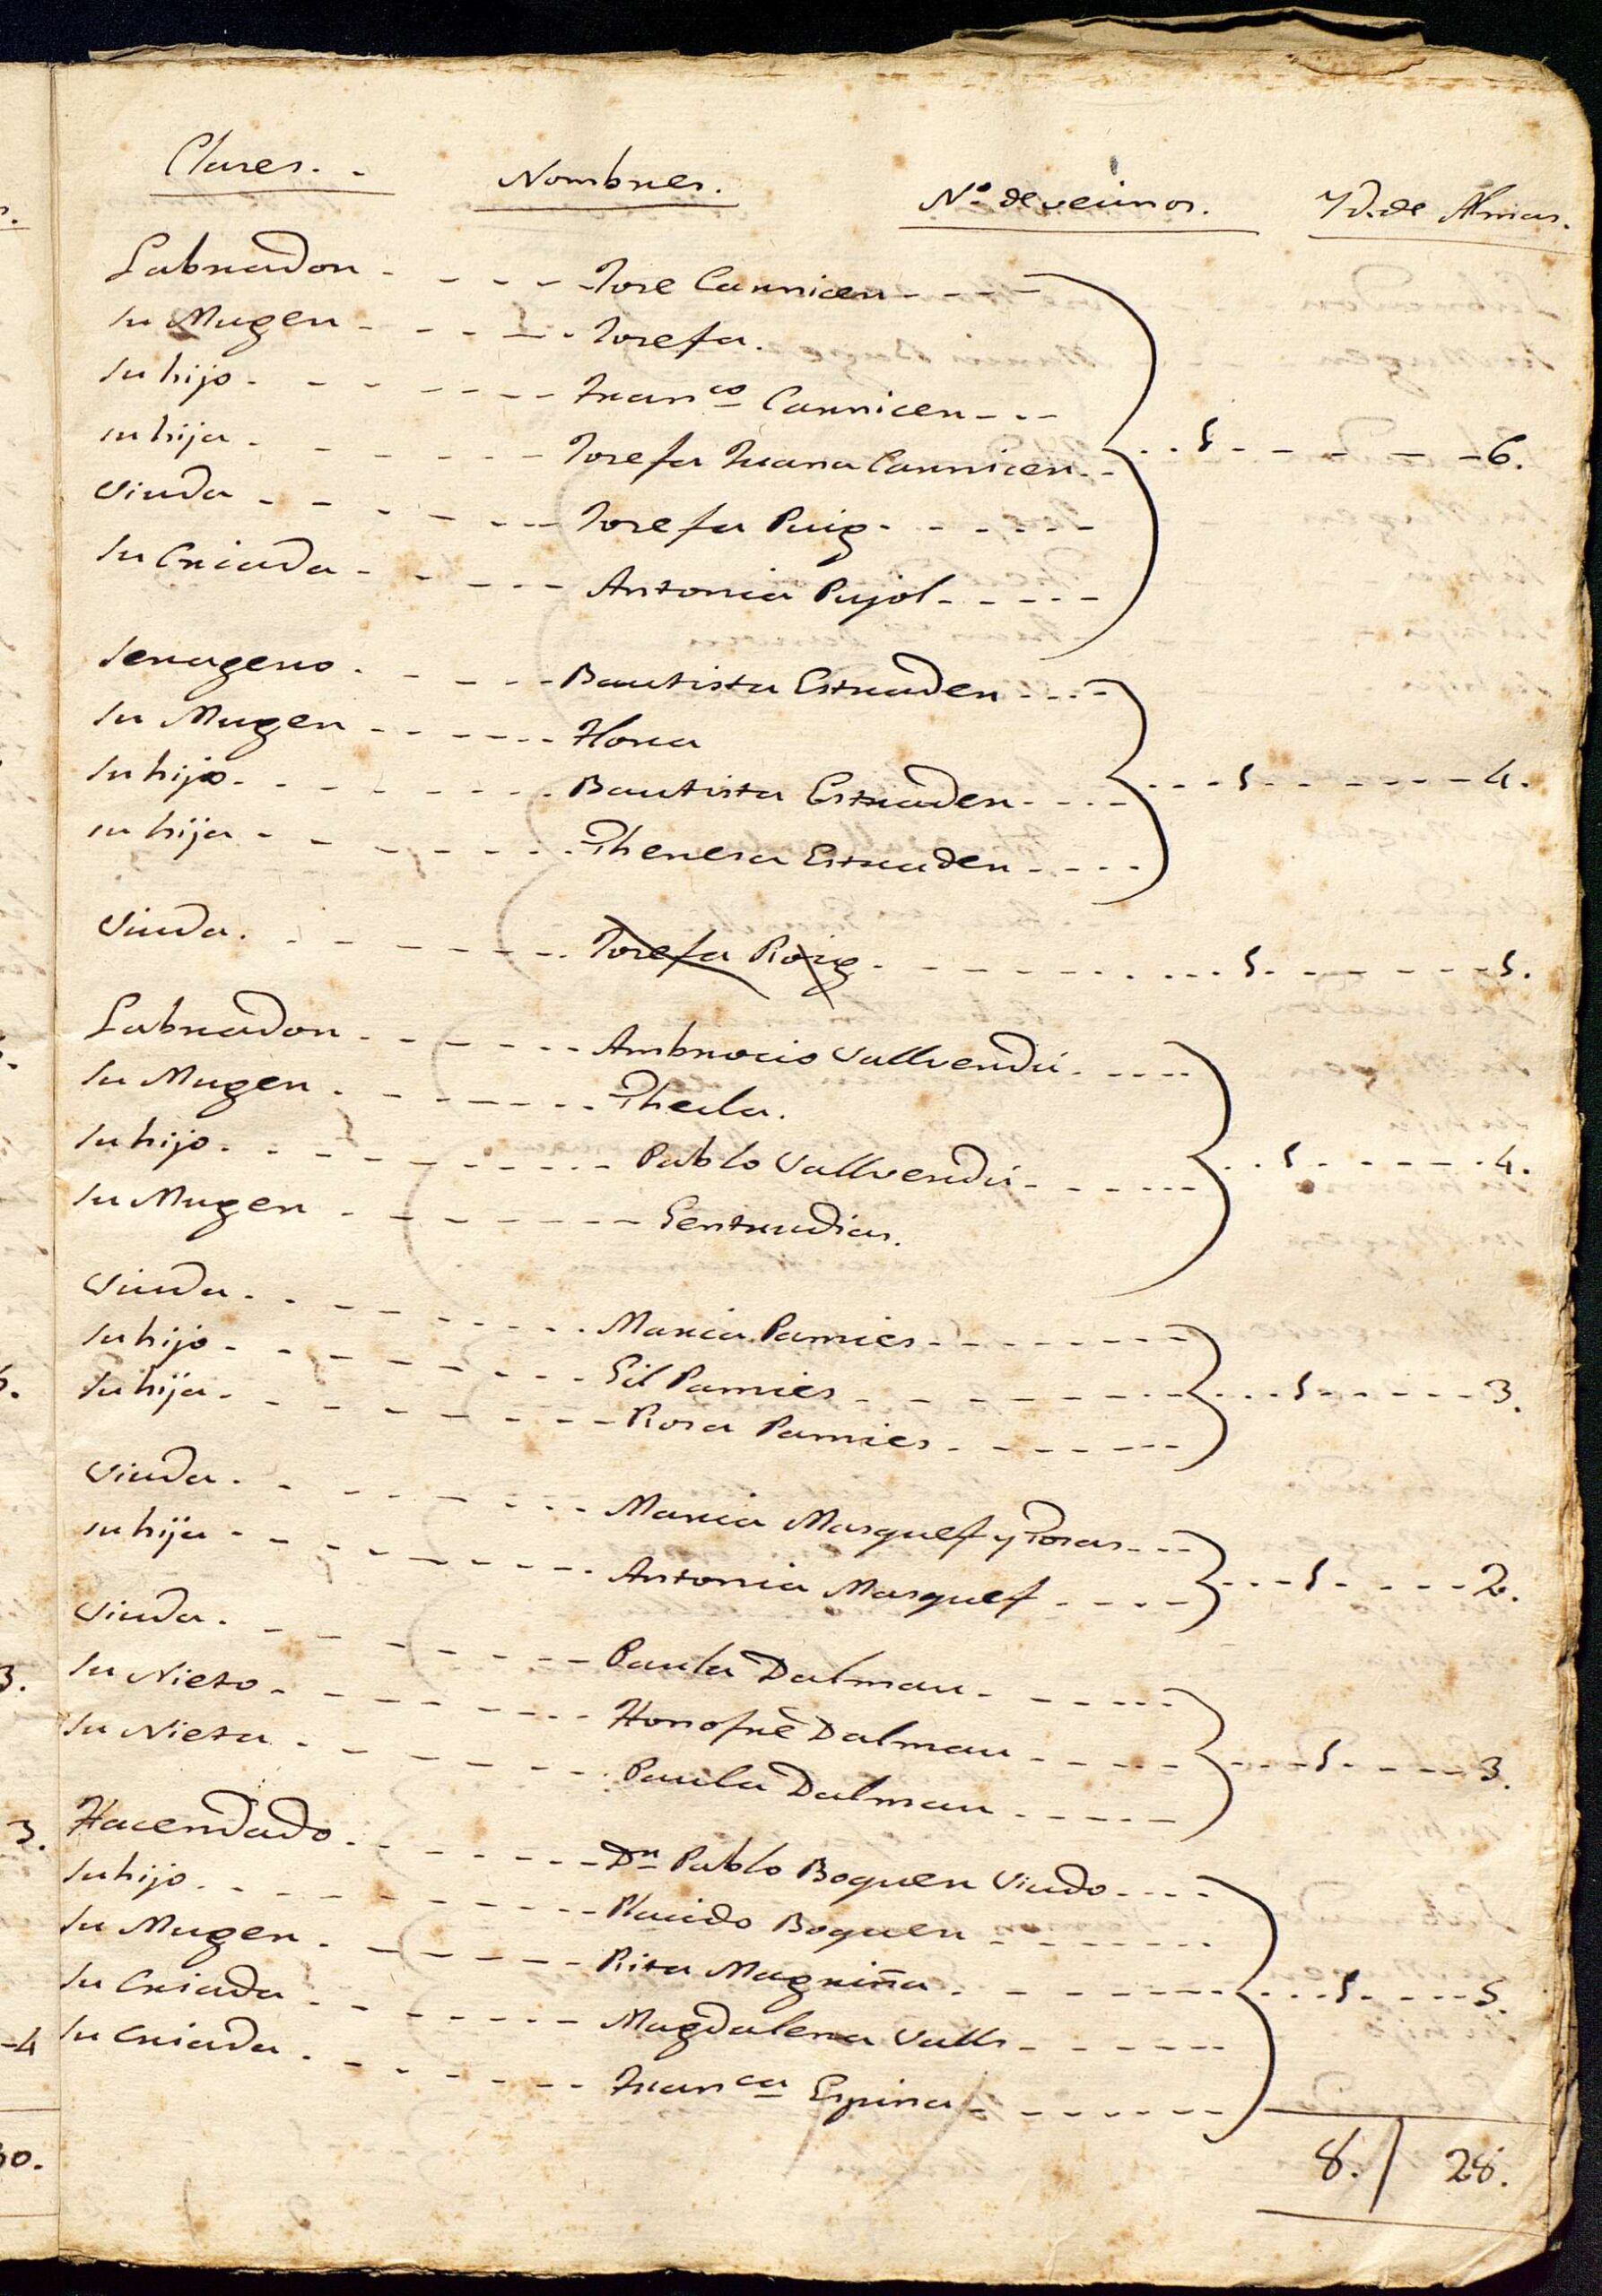 Clases. Nombres. Nº de vecinos. Yd. de Almas.
Labrador - - - - Jose Carnicer - - - -
Su Muger - - - - Josefa.
Su hijo - - - - Franco Carnicer - - -
su hija - - - - Josefa Juana Carnicer - - 1 - - - - 6.
Viuda - - - - Josefa Puig - - - -
Su Criada - - - - Antonia Pujol - - - -
Terragero - - - - Bautista Estrader - - - -
Su Muger - - - - Flora
Su hijo - - - - Bautista Estrader - - - - 1 - - - - 4.
su hija - - - - Theresa Estrader - - - -
Viuda - - - - Josefa Roig - - - - 1 - - - - 1.
Labrador - - - - Ambrocio Vallverdú - - - -
Su Muger - - - - Thecla.
Su hijo - - - - Pablo Vallverdú - - - - 1 - - - - 4.
Su Muger - - - - Gertrudias.
Viuda - - - - Maria Pamies - - - -
Su hijo - - - - Gil Pamies - - - - 1 - - - - 3.
Su hija - - - - Rosa Pamies - - - -
Viuda - - - - Maria Masquef y - - -
su hija - - - - Antonia Masquef - - - - 1 - - - - 2.
Viuda - - - - Paula Dalmau - - - -
Su Nieto - - - - Honofrê Dalmau - - - - 1 - - - - 3.
Su Nieta - - - - Paula Dalmau - - - -
Hacendado - - - - Dn Pablo Boquer Viudo - - - -
Su hijo - - - - Placido Boquer - - - -
Su Muger - - - - Rita Magriña - - - - 1 - - - - 5.
Su Criada - - - - Magdalena Valls - - - -
Su Criada - - - - Franca Espina - - - -
8. / 28.